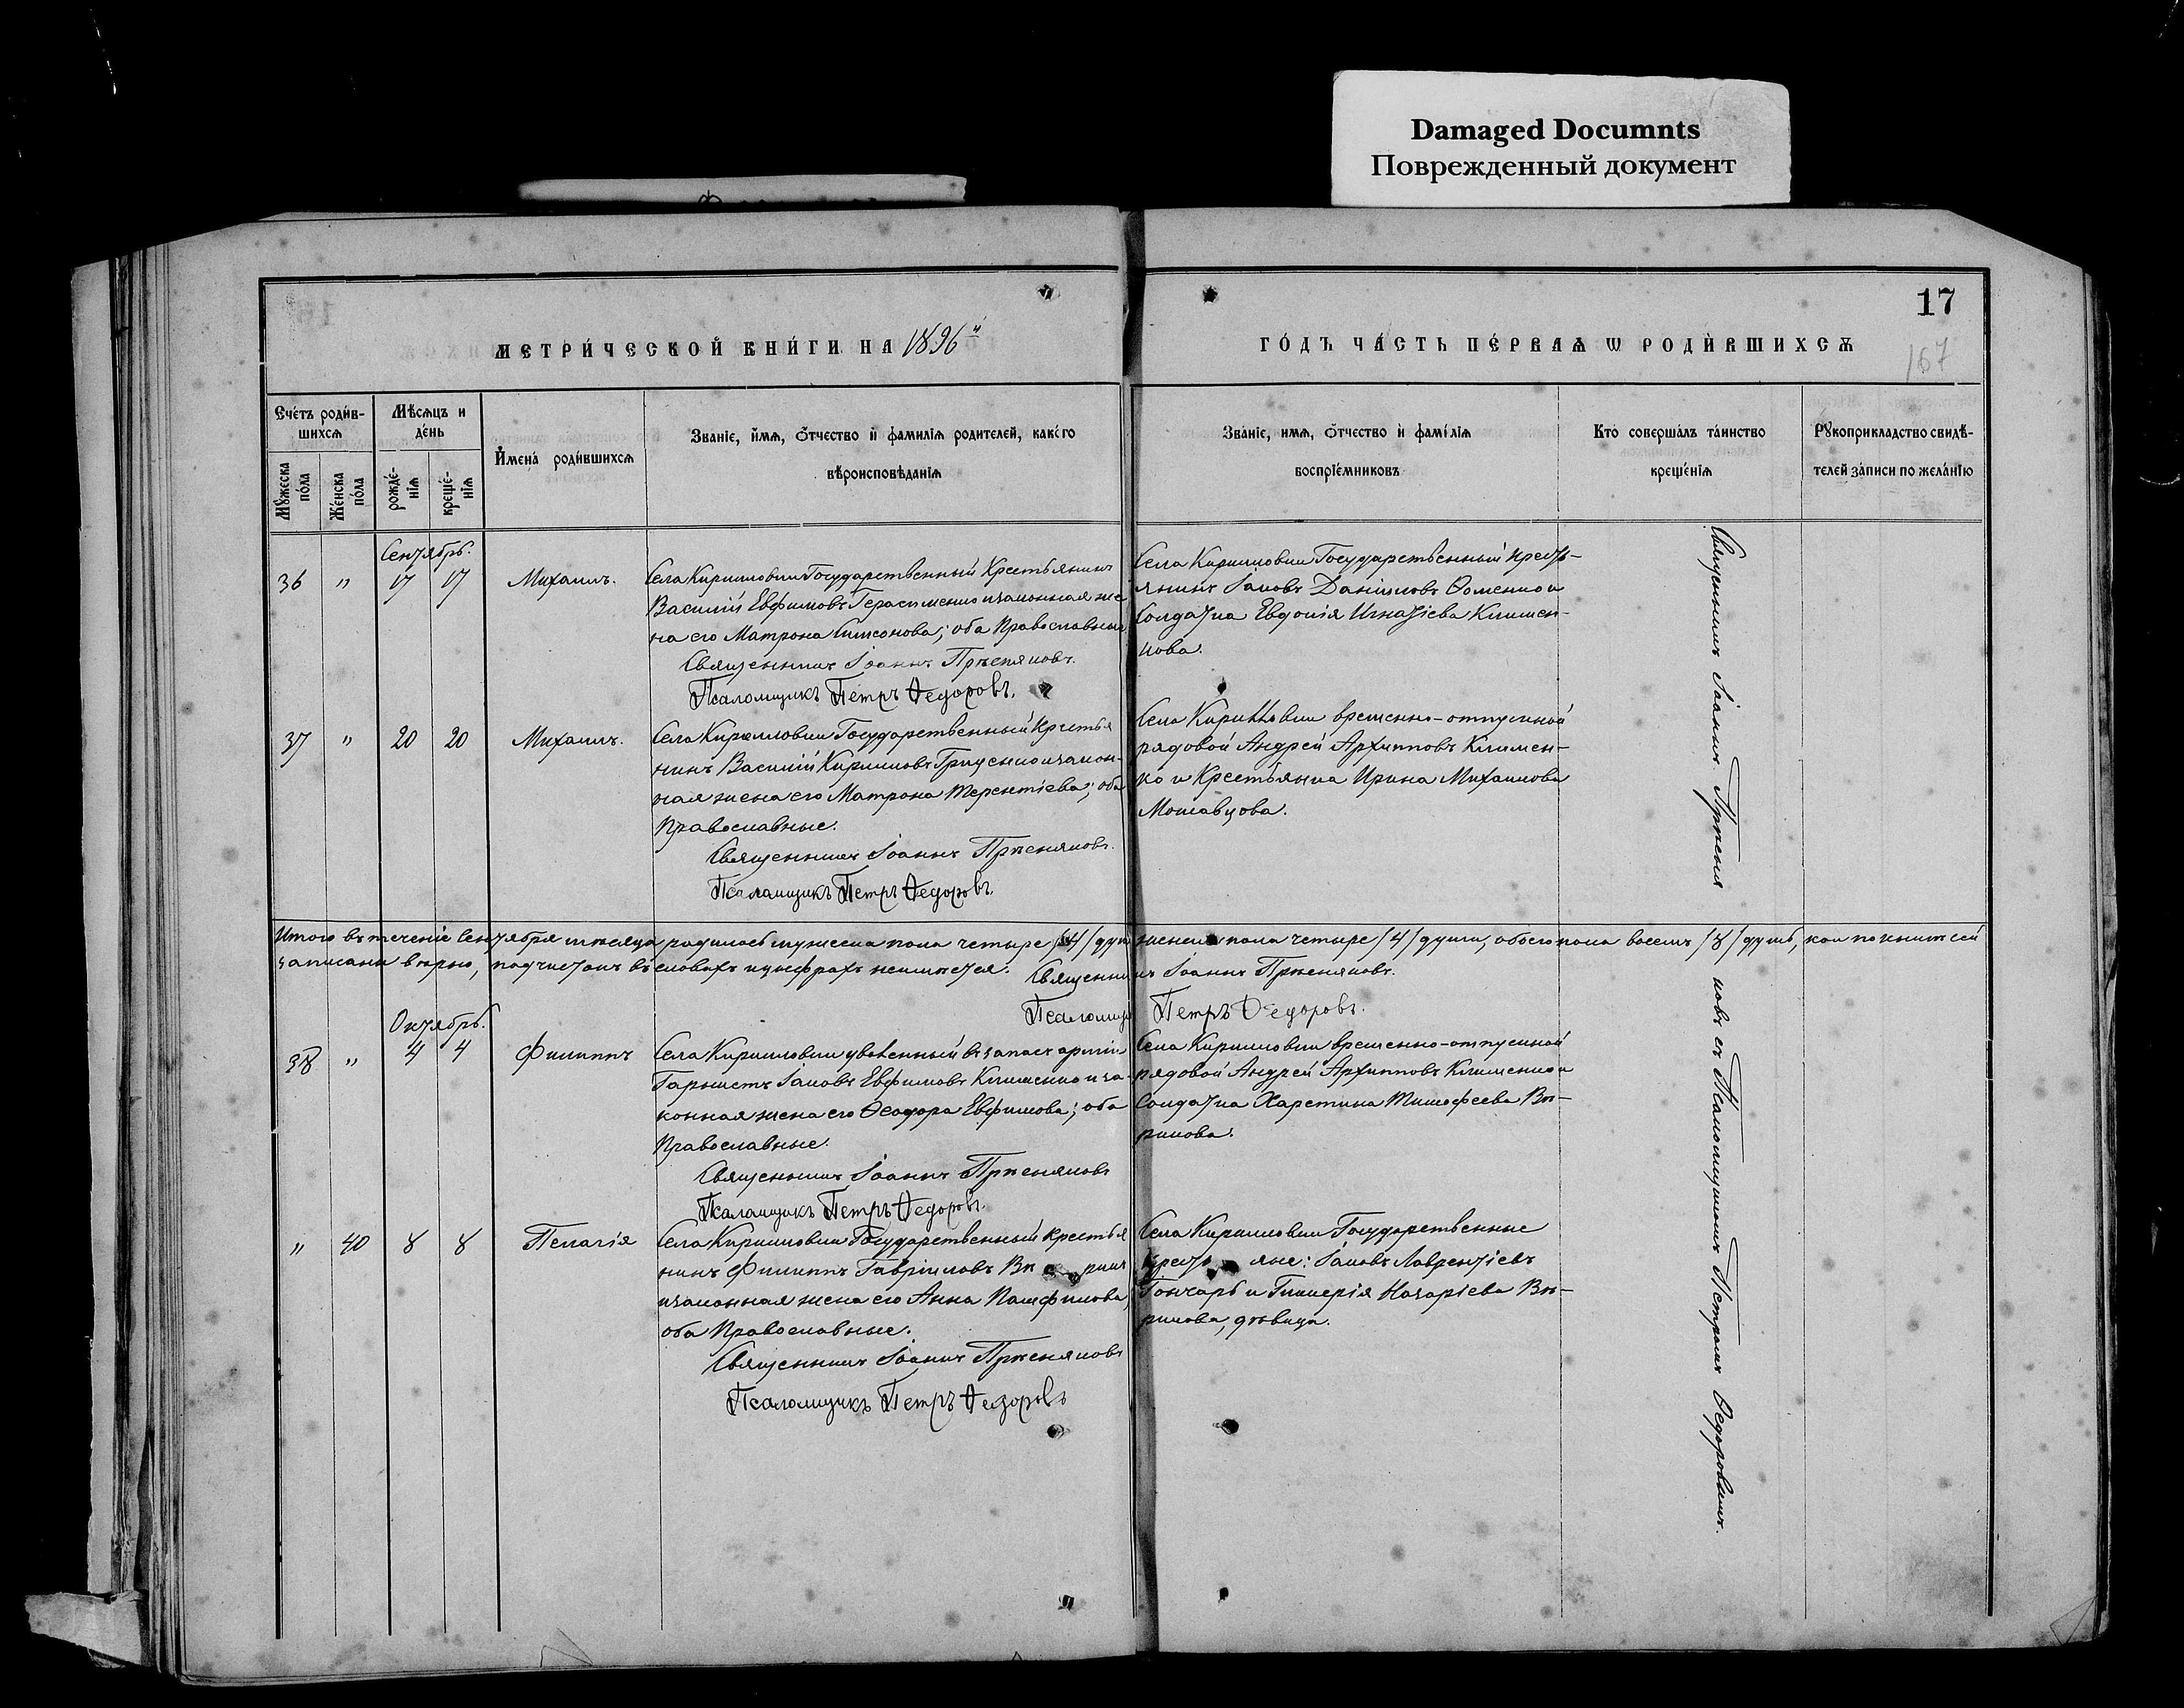 Damaged Documnts
Поврежденный документ
17
167
МЕТРИ́ЧЕСКОЙ КНИ́ГИ НА 1896й
ГО́ДЪ ЧА́СТЬ ПЕ́РВАѦ Ѡ РОДИ́ВШИХСѦ
Сче́тъ роди́в-
шихсѧ
Мѣсѧцъ и
де́нь
Мꙋжеска
по́ла
Же́нска
по́ла
рожде́-
нїѧ
креще́-
нїѧ
И҆мена́ роди́вшихсѧ
Званїе, и҆мѧ, ѻ҆тчество и҆ фамилїѧ родителей, како́го
вѣроисповѣданїѧ
Зва́нїе, имѧ, ѻ҆тчество и҆ фами́лїѧ
воспрїе́мниковъ
Кто̀ соверша́лъ та́инство
креще́нїѧ
Рꙋкоприкладство свидѣ-
телей за́писи по жела́нїю
Сентябрь.
36 " 17 17 Михаилъ.
Села Кирилловки Государственный Крестьянинъ
Василій Евфимовъ Герасименко и законная же
на его Матрона Симеонова; оба Православные
Священникъ Іоаннъ Прѣсняковъ.
Псаломщикъ Петръ Ѳедоровъ.
Села Кирилловки Государственный кресть-
янинъ Іаковъ Даніиловъ Ѳоменко и
Солдатка Евдокія Игнатіева Климен-
кова.
37 " 20 20 Михаилъ.
Села Кирилловки Государственный Крестья
нинъ Василій Кирилловъ Гриценко и закон-
ная жена его Матрона Терентіева; оба
Православные.
Священникъ Іоаннъ Прѣсняковъ.
Псаломщикъ Петръ Ѳедоровъ.
Села Кирилловки временно-отпускной
рядовой Андрей Архипповъ Климен-
ко и Крестьянка Ирина Михаилова
Моставцова.
Итого въ теченіе Сентября мѣсяца родилось мужеска пола четыре /4/ душ женска пола четыре /4/ души, обоего пола восемь /8/ душъ, кои по книгѣ сей
записаны вѣрно, подчистокъ въ словахъ и цифрахъ не имѣется. Священникъ Іоаннъ Прѣсняковъ.
Псаломщи Петръ Ѳедоровъ.
Октябрь.
38 " 4 4 Филиппъ
Села Кирилловки уволенный въ запасъ арміи
Іаковъ Евфимовъ Клименко и за-
конная жена его Ѳеодора Евфимова; оба
Православные.
Священникъ Іоаннъ Прѣсняковъ
Псаломщикъ Петръ Ѳедоровъ.
Села Кирилловки временно-отпускной
рядовой Андрей Архипповъ Клименко и
Солдатка Харетина Тимофеева Вѣ-
рикова.
" 40 8 8 Пелагія
Села Кирилловки Государственный крестья
нинъ Филиппъ Гавріиловъ Вѣ рикъ
и законная жена его Анна Памфилова;
оба Православные.
Священникъ Іоаннъ Прѣсняковъ
Псаломщикъ Петръ Ѳедоровъ
Села Кирилловки Государственные
кресть яне: Іаковъ Лаврентіевъ
Гончаръ и Гликерія Назаріева Вѣ-
рикова, дѣвица.
Священникъ Іоаннъ Прѣсня
ковъ съ Псаломщикомъ Петромъ Ѳедоровымъ.